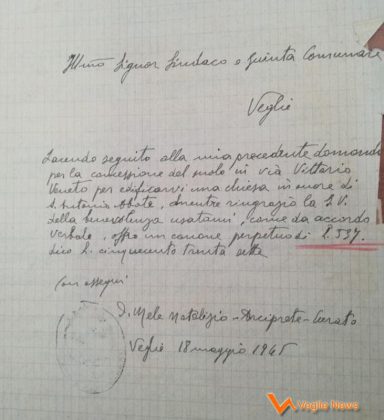 Ill.mo Signor Sindaco e Giunta Comunale
Veglie
Facendo seguito alla mia precedente domanda
per la concessione del suolo in via Vittorio
Veneto per edificarvi una chiesa in onore di
S. Antonio Abate, mentre ringrazio la S. V.
della benevolenza usatami, come da accordo
verbale, offro un canone perpetuo di £. 537.
dico L. cinquecento trenta sette
Con ossequi
D. Mele Natalizio - Arciprete - Curato
Veglie 18 maggio 1945
Veglie News